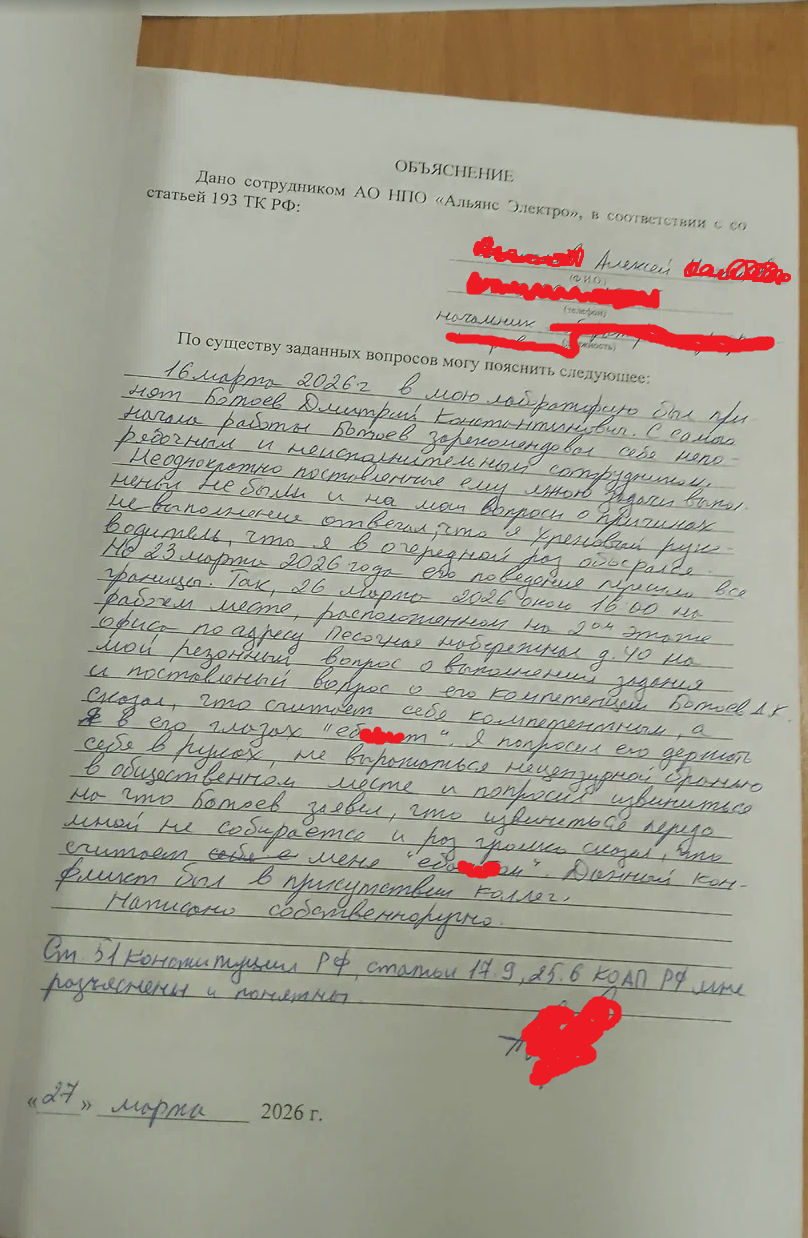 ОБЪЯСНЕНИЕ
Дано сотрудником АО НПО «Альянс Электро», в соответствии с со
статьей 193 ТК РФ:
Алексей
(Ф.И.О.)
(телефон)
начальник
(должность)
По существу заданных вопросов могу пояснить следующее:
16 марта 2026 г в мою лабораторию был при-
нят Ботоев Дмитрий Константинович. С самого
начала работы Ботоев зарекомендовал себя непо-
рядочным и неисполнительным сотрудником.
Неоднократно поставленные ему мною задачи выпол-
нены не были и на мои вопросы о причинах
не выполнения отвечал, что "я хреновый руко-
водитель, что я в очередной раз обосрался.
Но 23 марта 2026 года его поведение перешло все
границы. Так, 26 марта 2026 около 16:00 на
рабочем месте, расположенном на 2ом этаже
офиса по адресу Песочная набережная д. 40 на
мой резонный вопрос о выполнении задания
и поставленый вопрос о его компетенции Ботоев Д.К.
сказал, что считает себя компетентным, а
я в его глазах "еб т". Я попросил его держать
себя в руках, не выражаться нецензурной бранью
в общественном месте и попросил извиниться
на что Ботоев заявил, что извиниться передо
мной не собирается и раз громко сказал, что
считает меня "ебо ом". Данный кон-
фликт был в присутствии коллег.
Написано собственноручно.
Ст. 51 Конституции РФ, статьи 17.9, 25.6 КОАП РФ мне
разъяснены и понятны.
«27» марта 2026 г.